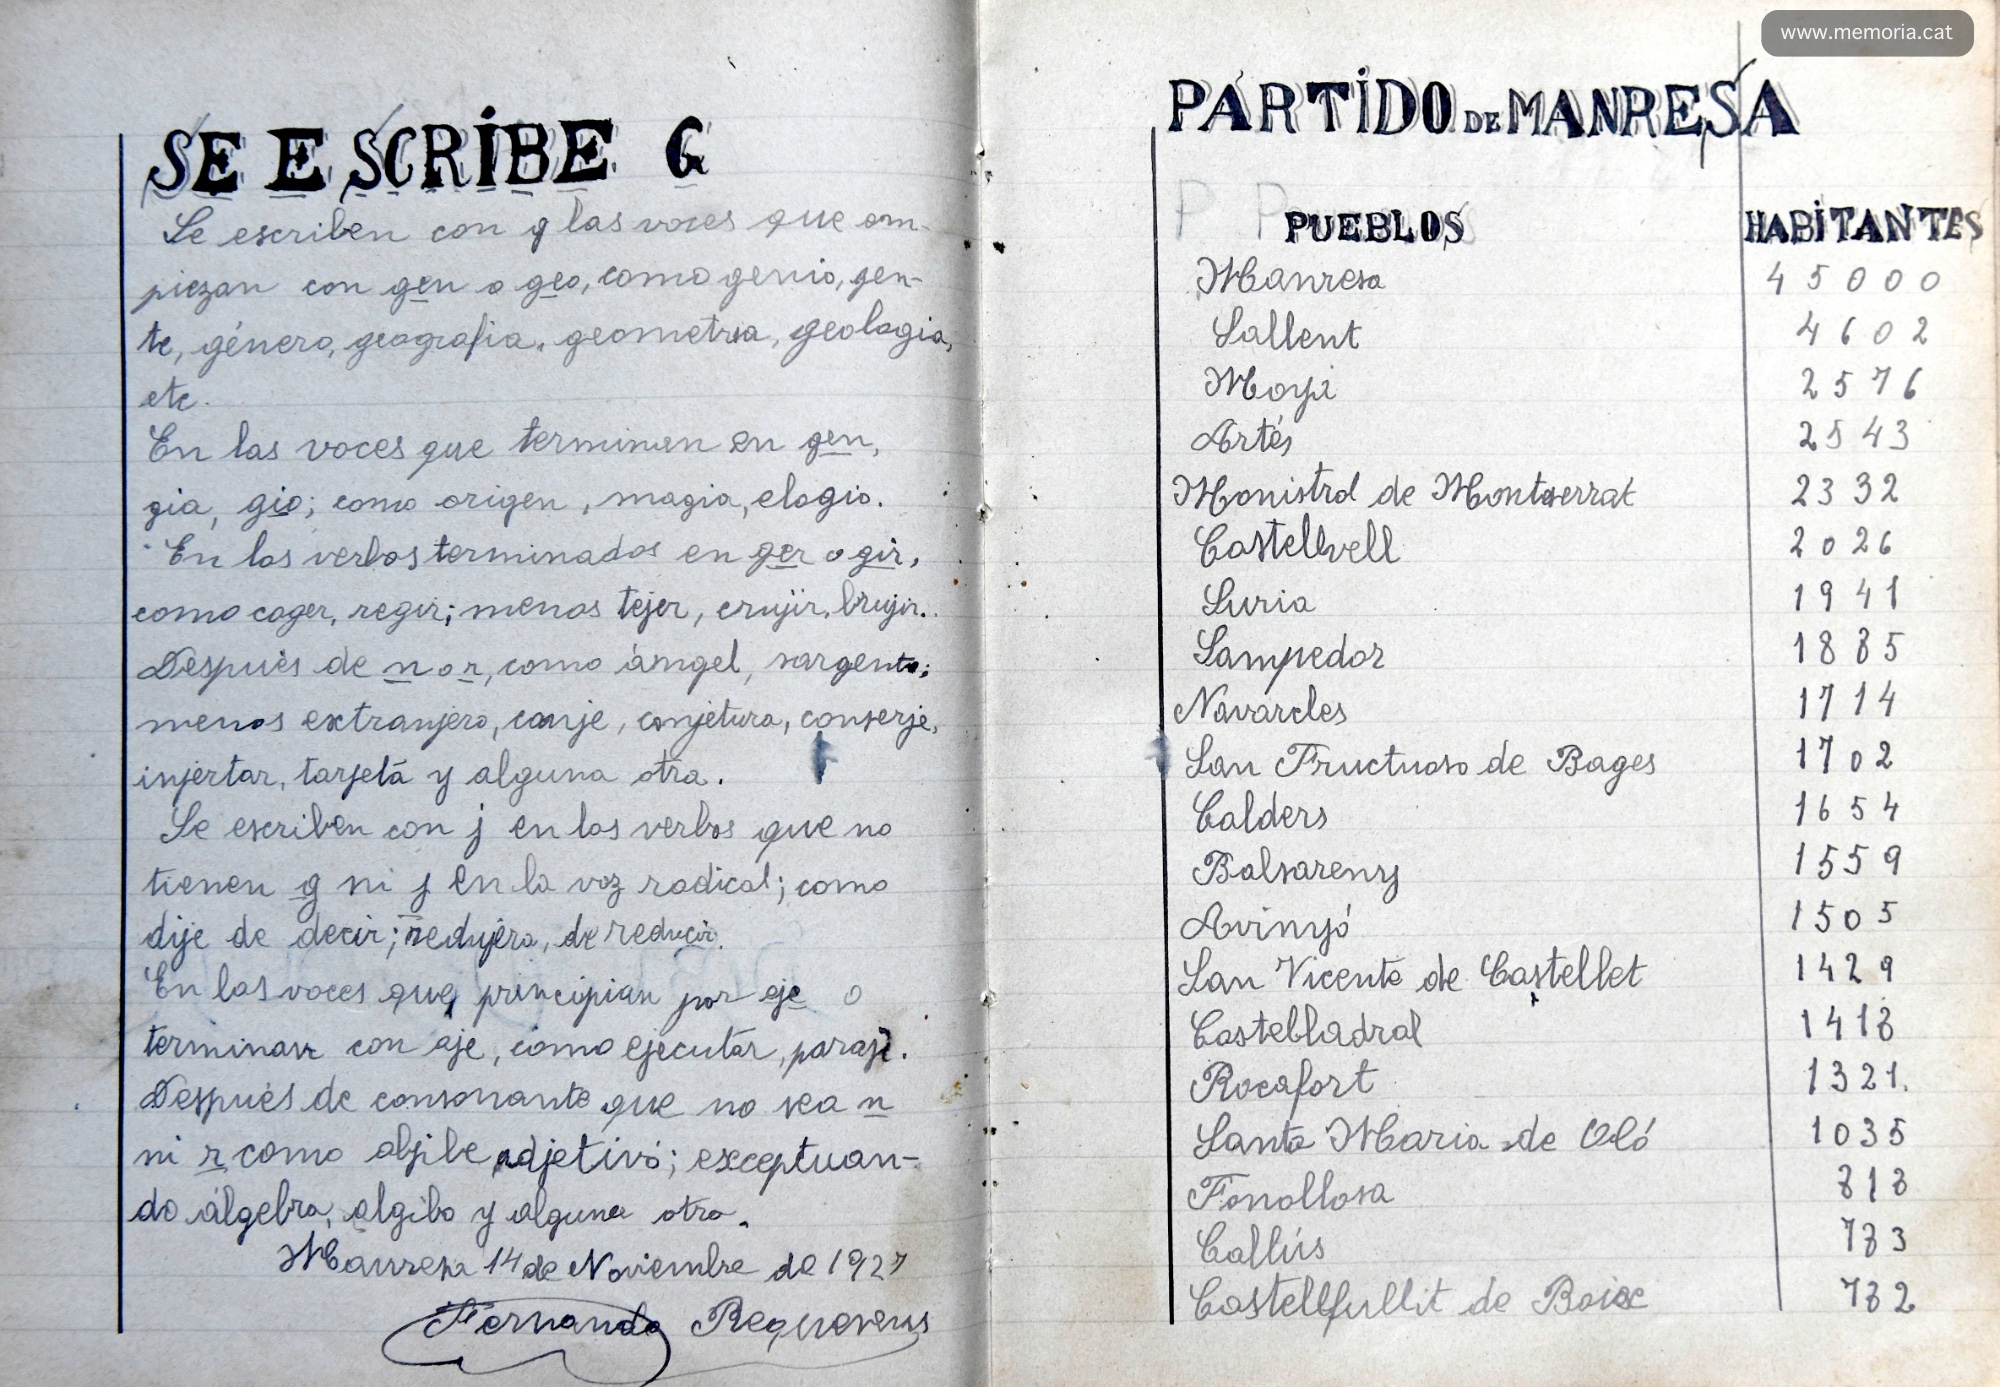 www.memoria.cat
SE ESCRIBE G
Se escriben con g las voces que em-
piezan con gen o geo, como genio, gen-
te, género, geografia, geometria, geologia,
etc.
En las voces que terminan en gen,
gia, gio; como origen, magia, elogio.
En los verbos terminados en ger o gir,
como coger, regir; menos tejer, crujir, brujir.
Después de n o r, como ángel, sargento;
menos extranjero, canje, conjetura, conserje,
injertar, tarjeta y alguna otra.
Se escriben con j en los verbos que no
tienen g ni j en la voz radical; como
dije de decir; redujera, de reducir.
En las voces que principian por eje o
terminan con aje, como ejecutar, paraje.
Después de consonante que no sea n
ni r como aljibe adjetivo; exceptuan-
do álgebra, algibo y alguna otra.
Manresa 14 de Noviembre de 1927
Fernando Requesens
PARTIDO DE MANRESA
PUEBLOS HABITANTES
Manresa 45000
Sallent 4602
Moyá 2576
Artés 2543
Monistrol de Montserrat 2332
Castellvell 2026
Suria 1941
Sampedor 1885
Navarcles 1714
San Fructuoso de Bages 1702
Calders 1654
Balsareny 1559
Avinyó 1505
San Vicente de Castellet 1429
Castelladral 1418
Rocafort 1321.
Santa Maria de Oló 1035
Fonollosa 818
Callús 783
Castellfullit de Boixe 782